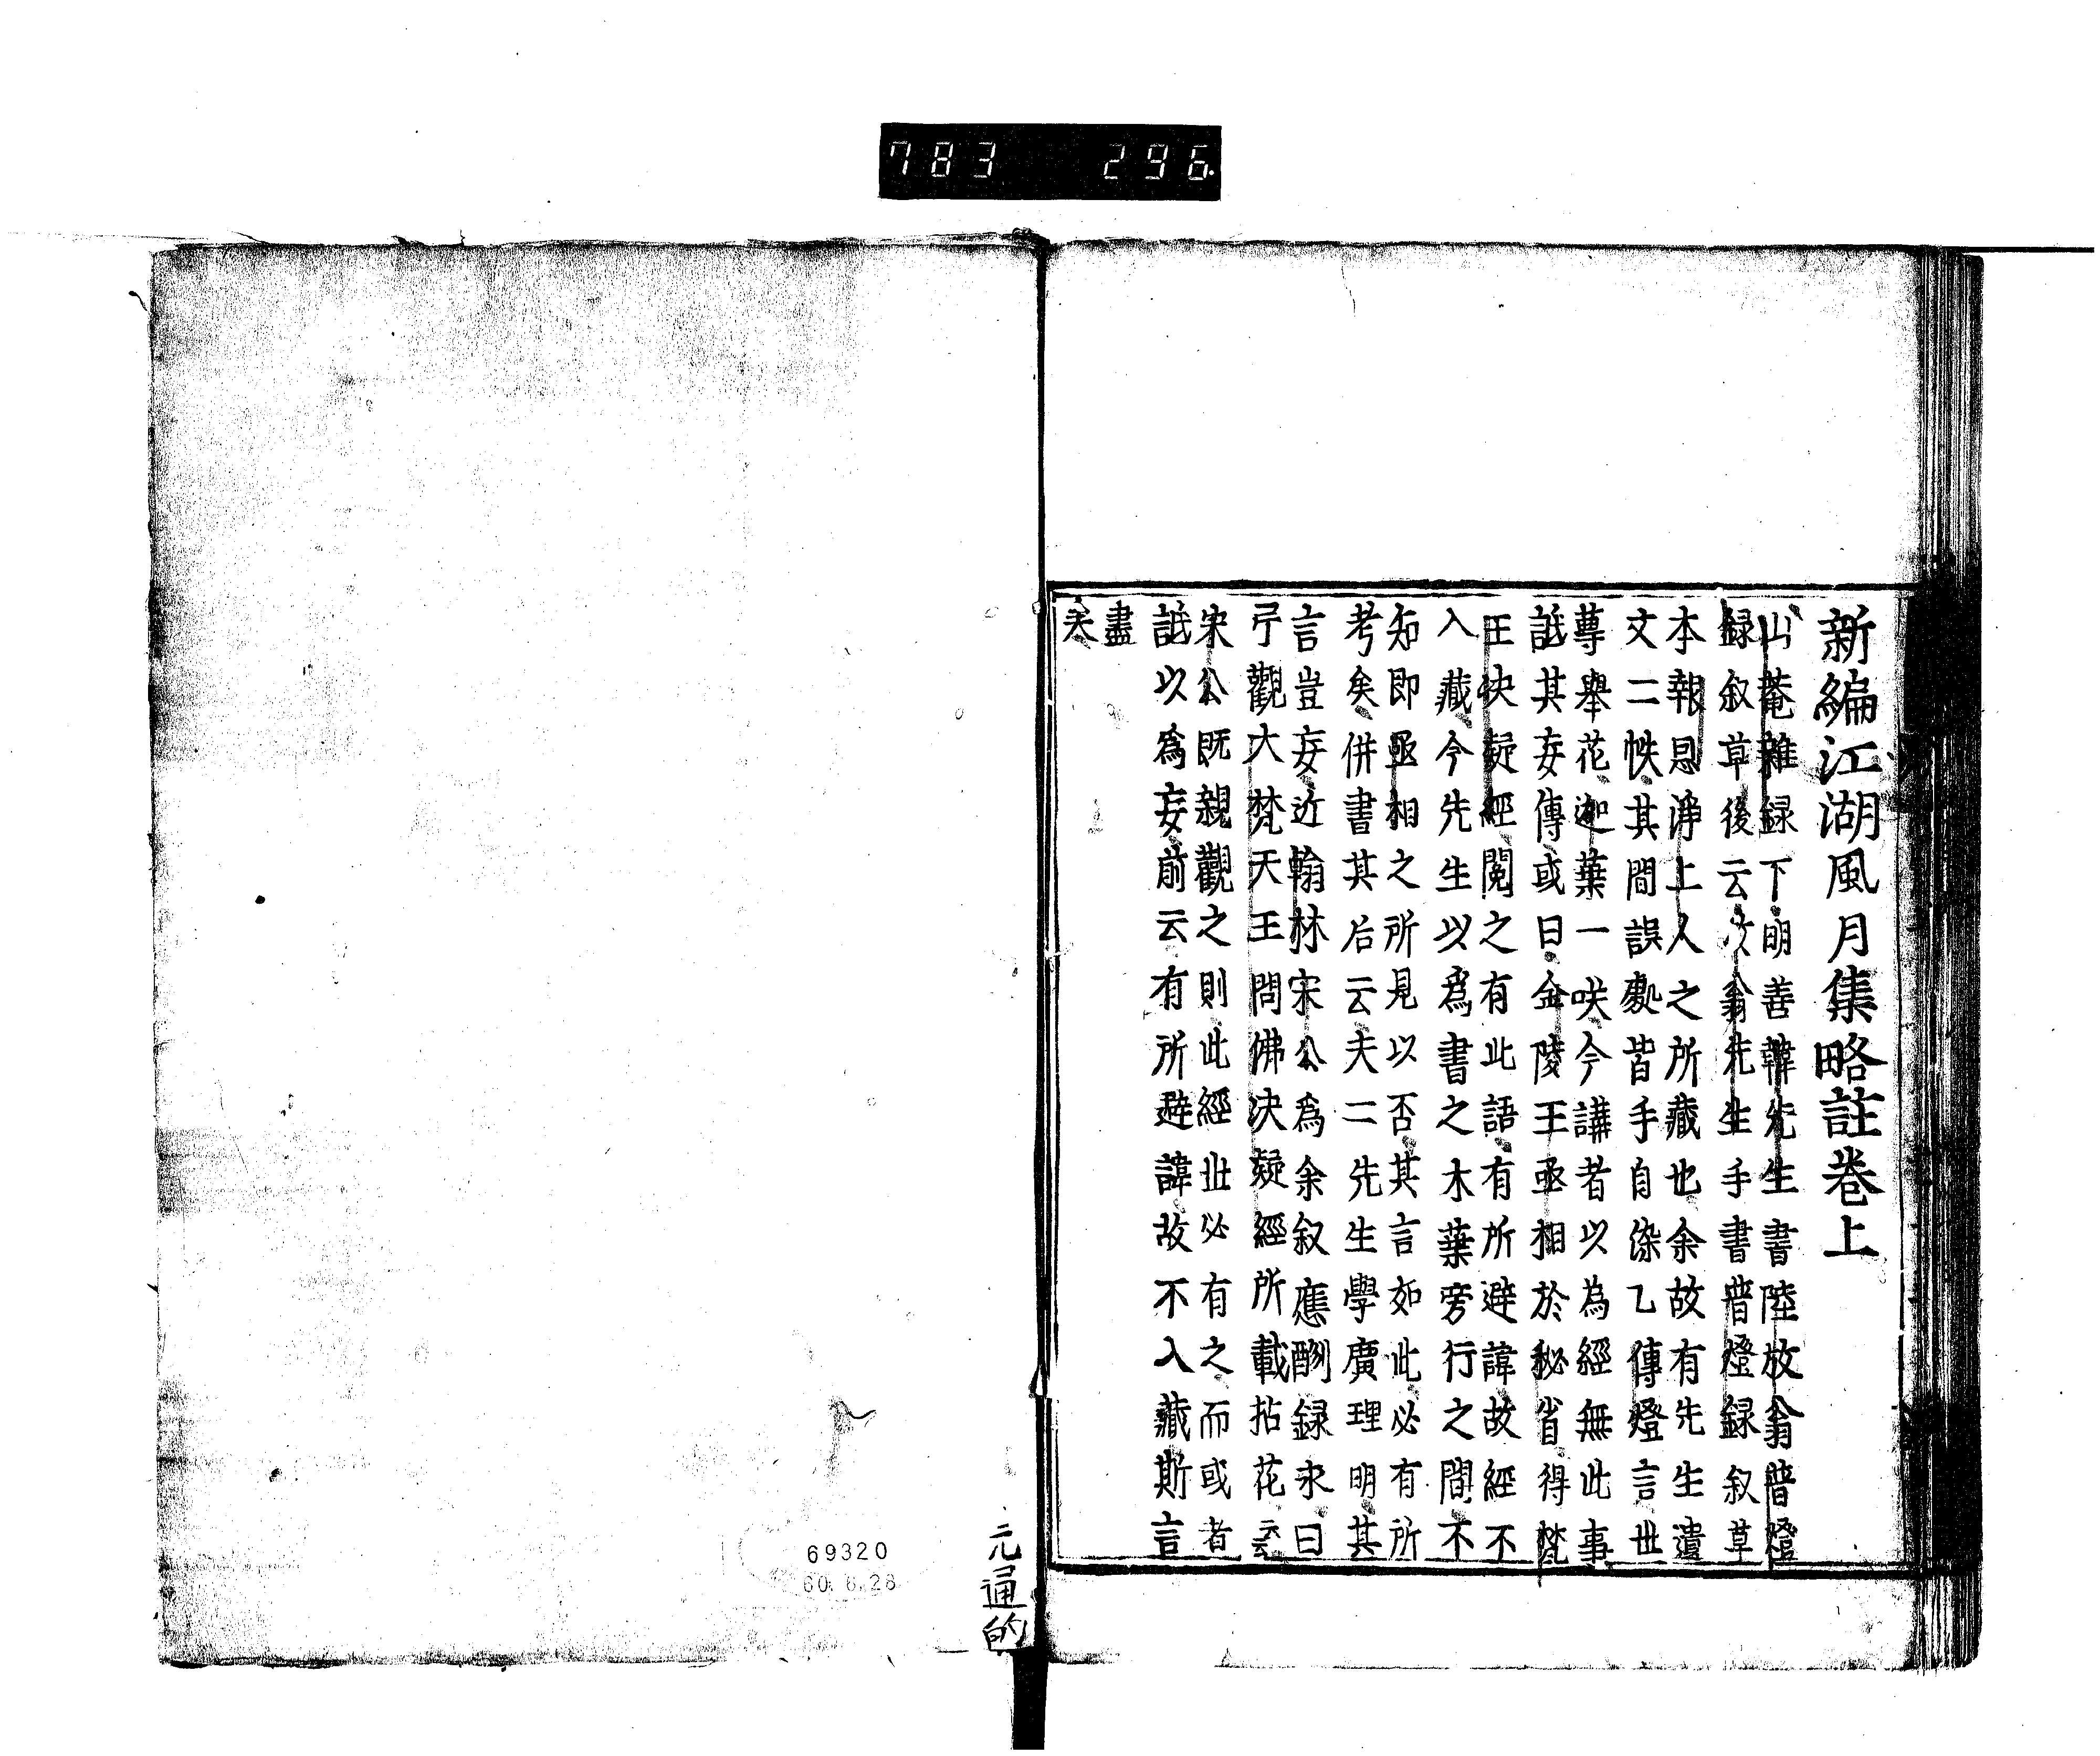 783 296
新編江湖風月集略註卷上
山菴雜録下明善韓先生書陸放翁普燈
録叙草後云放翁先生手書普燈録叙草
本報恩淨上人之所藏也余故有先生遺
文二帙其間誤處皆手自塗乙傳燈言世
尊舉花迦葉一咲今講者以為經無此事
詆其妄傳或曰金陵王丞相於秘省得梵
王決疑經閲之有此語有所避諱故經不
入藏今先生以爲書之木葉旁行之間不
知即亟相之所見以否其言如此必有所
考矣併書其后云夫二先生學廣理明其
言豈妄近翰林宋公為余叙應酬録求曰
予觀大梵天王問佛决疑經所載拈花云云
宋公既親觀之則此經世必有之而或者
詆以爲妄前云有所避諱故不入藏斯言
盡
矣
元通的
69320
60.6.28